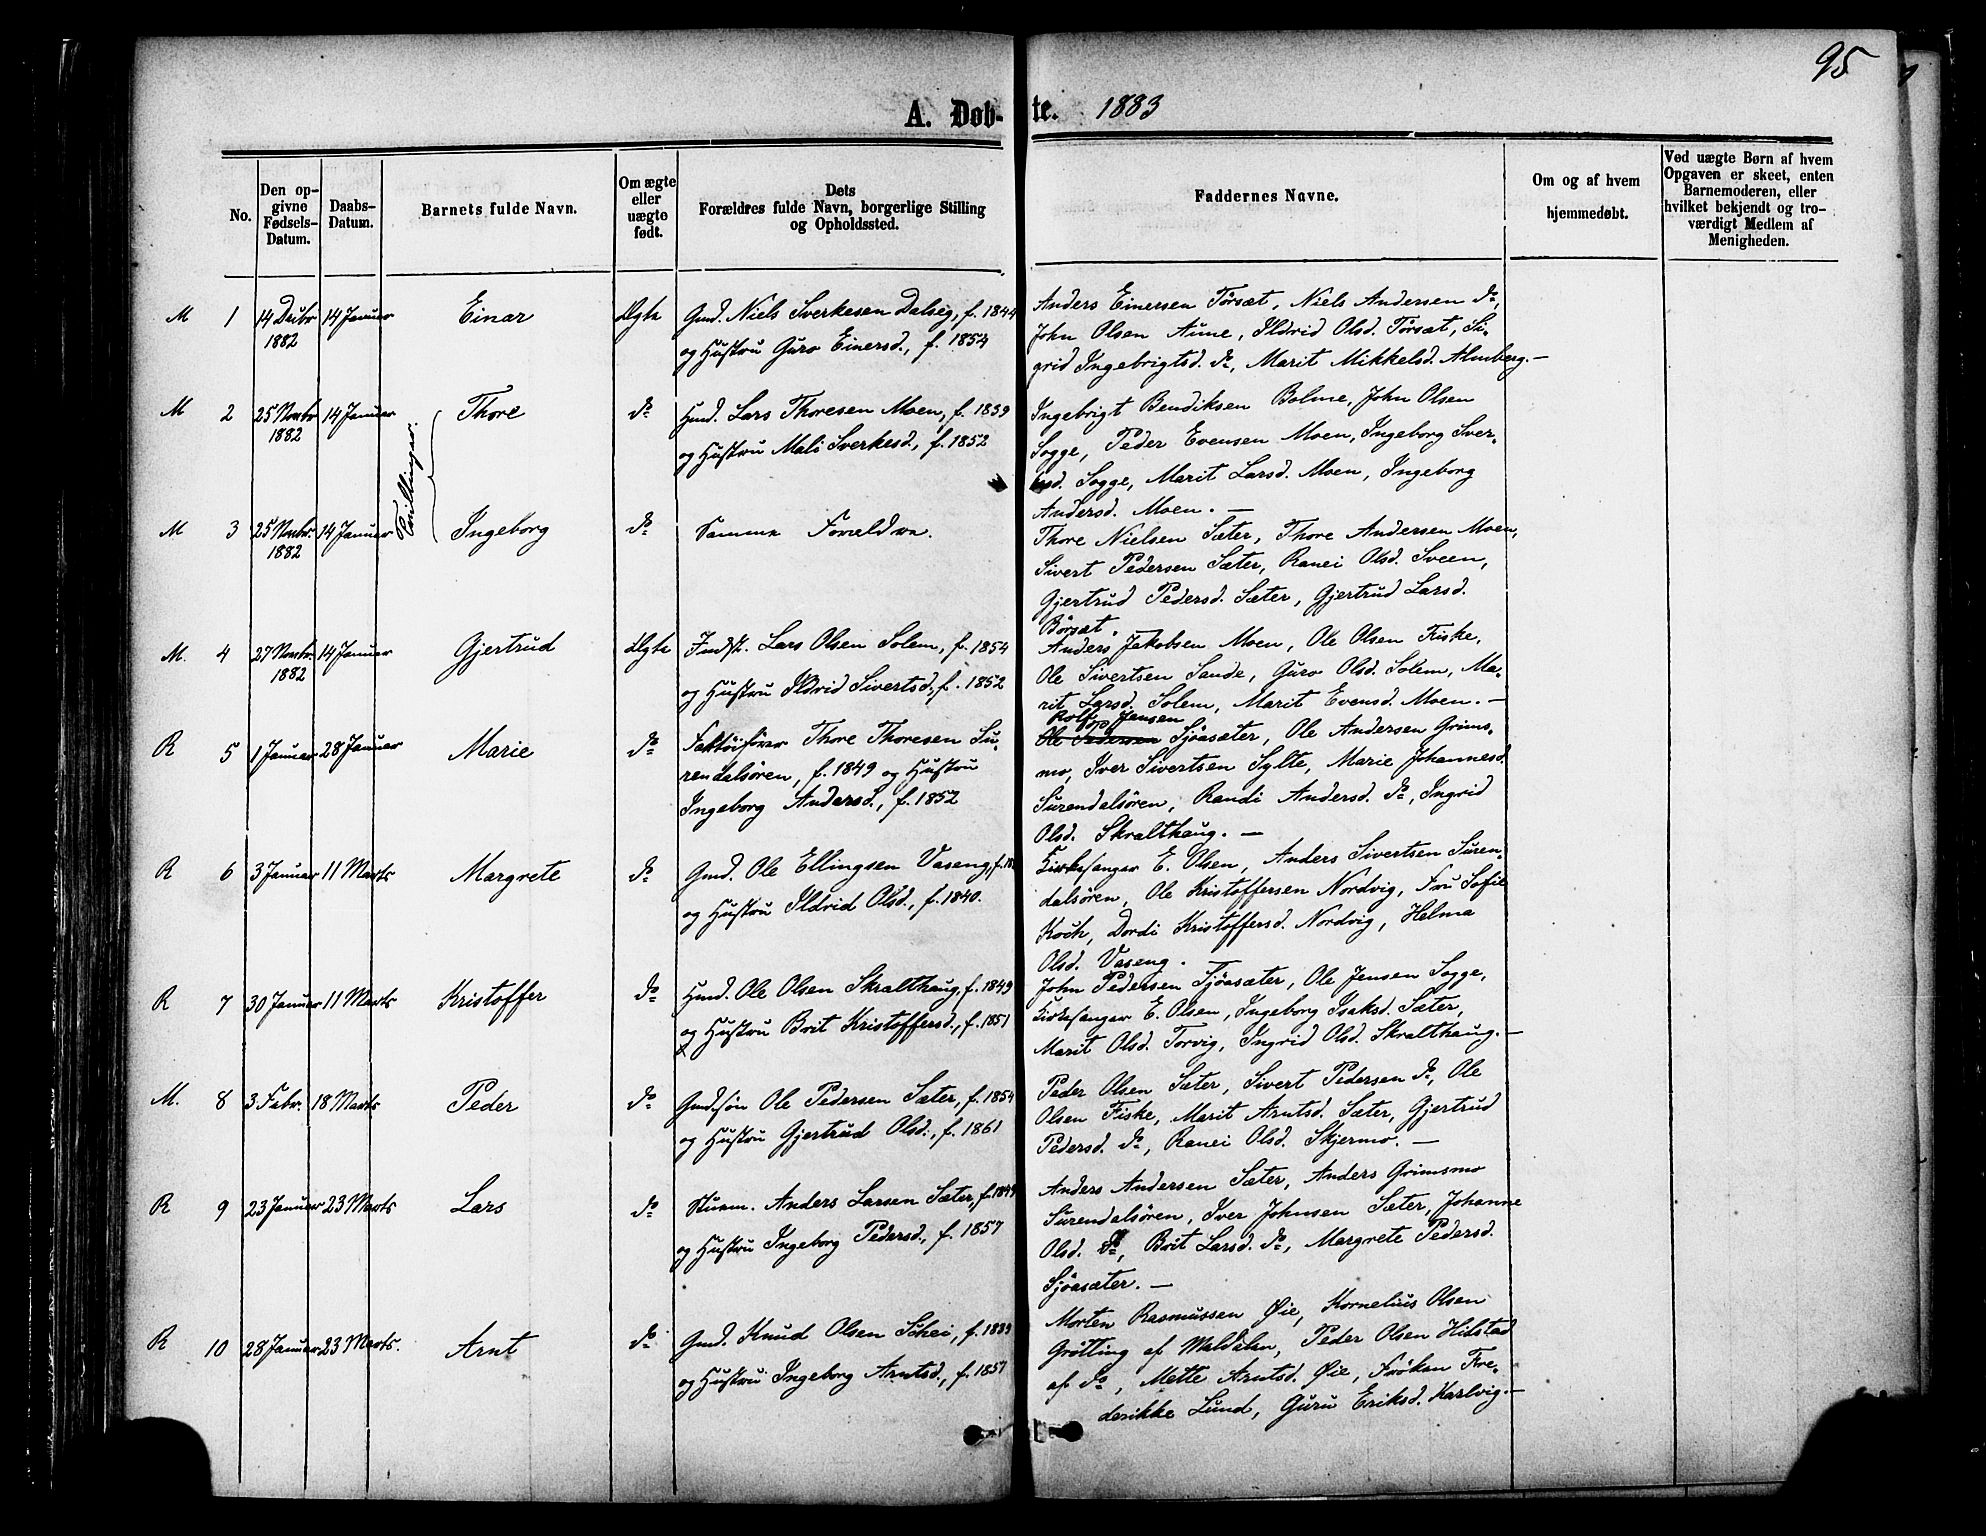 95
A. Døb-te. 1883
No.
Den op-
givne
Fødsels-
Datum.
Daabs-
Datum.
Barnets fulde Navn.
Om ægte
eller
uægte
født.
Dets
Forældres fulde Navn, borgerlige Stilling
og Opholdssted.
Faddernes Navne.
Om og af hvem
hjemmedøbt.
Ved uægte Børn af hvem
Opgaven er skeet, enten
Barnemoderen, eller
hvilket bekjendt og tro-
værdigt Medlem af
Menigheden.
M 1 14 Decbr 1882 14 Januar Einar Ægte
Gmd. Niels Sverkesen Dalseg, f. 1844
og Hustru Guro Einersd., f. 1854
Anders Einersen Tørsæt, Niels Andersen do,
John Olsen Aune, Ildrid Olsd. Tørsæt, Si-
grid Ingebrigtsd. do, Marit Mikkelsd. Almberg.—
M 2 25 Novbr 1882 14 Januar Tvillinger. Thore do
Hmd. Lars Thoresen Moen, f. 1839
og Hustru Mali Sverkesd., f. 1852
Ingebrigt Bendiksen Bolme, John Olsen
Sogge, Peder Evensen Moen, Ingeborg Sver-
kesd. Sogge, Marit Larsd. Moen, Ingeborg
Andersd. Moen. —
M 3 25 Novbr. 1882 14 Januar Ingeborg do
Samme Forældre.
Thore Nielsen Sæter, Thore Andersen Moen,
Sivert Pedersen Sæter, Ranei Olsd. Sveen,
Gjertrud Pedersd. Sæter, Gjertrud Larsd.
Børsæt.
M. 4 27 Novbr. 1882 14 Januar Gjertrud Ægte
Indst. Lars Olsen Solem, f. 1854
og Hustru Ildrid Sivertsd., f. 1852
Anders Jakobsen Moen, Ole Olsen Fiske,
Ole Sivertsen Sande, Guro Olsd. Solem, Ma-
rit Larsd. Solem, Marit Evensd. Moen. —
R 5 1 Januar 28 Januar Marie do
Fartøifører Thore Thoresen Su-
rendalsøren, f. 1849 og Hustru
Ingeborg Andersd., f. 1852
Rolf Jansen
Ole Pedersen Sjøasæter, Ole Andersen Grims-
mo, Iver Sivertsen Sylte, Marie Johannesd.
Surendalsøren, Randi Andersd. do, Ingrid
Olsd. Skralthaug. —
R 6 3 Januar 11 Marts Margrete do
Gmd. Ole Ellingsen Vaseng, f. 18
og Hustru Ildrid Olsd., f. 1840.
Kirkesanger E. Olsen, Anders Sivertsen Suren-
dalsøren, Ole Kristoffersen Nordvig, Fru Sofie
Koch, Dordi Kristoffersd. Nordvig, Helma
Olsd. Vaseng.
R 7 30 Januar 11 Marts Kristoffer do
Hmd. Ole Olsen Skralthaug, f. 1849
og Hustru Brit Kristoffersd., f. 1851
John Pedersen Sjøasæter, Ole Jensen Sogge,
Kirkesanger E. Olsen, Ingeborg Isaksd. Sæter,
Marit Olsd. Torvig, Ingrid Olsd. Skralthaug. —
M. 8 3 Febr. 18 Marts Peder do
Gmdsøn Ole Pedersen Sæter, f. 1854
og Hustru Gjertrud Olsd., f. 1861
Peder Olsen Sæter, Sivert Pedersen do, Ole
Olsen Fiske, Marit Arntsd. Sæter, Gjertrud
Pedersd. do, Ranei Olsd. Skjermo. —
R 9 23 Januar 23 Marts Lars do
Anders Larsen Sæter, f. 1849
og Hustru Ingeborg Pedersd., f. 1857
Anders Andersen Sæter, Anders Grimsmo
Surendalsøren, Iver Johnsen Sæter, Johanne
Olsd. do, Brit Larsd. do, Margrete Pedersd.
Sjøasæter. —
R 10 28 Januar 23 Marts. Arnt do
Gmd. Knud Olsen Schei, f. 1839
og Hustru Ingeborg Arntsd., f. 1857
Morten Rasmussen Øie, Kornelius Olsen
Grøtting af Maldalen, Peder Olsen Hilstad
af do, Mette Arntsd. Øie, Frøken Fre-
derikke Lund, Guru Eriksd. Karlvig. —